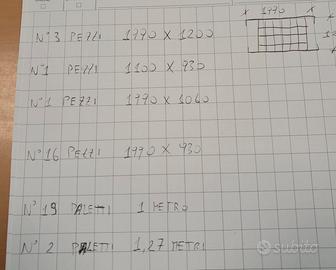 x 1990 x
N°3 PEZZI 1990 X 1200
N°1 PEZZI 1100 X 930
N°1 PEZZI 1990 X 1060
N°16 PEZZI 1990 X 930
N° 19 PALETTI 1 METRO
N° 2 PALETTI 1,27 METRI
subito